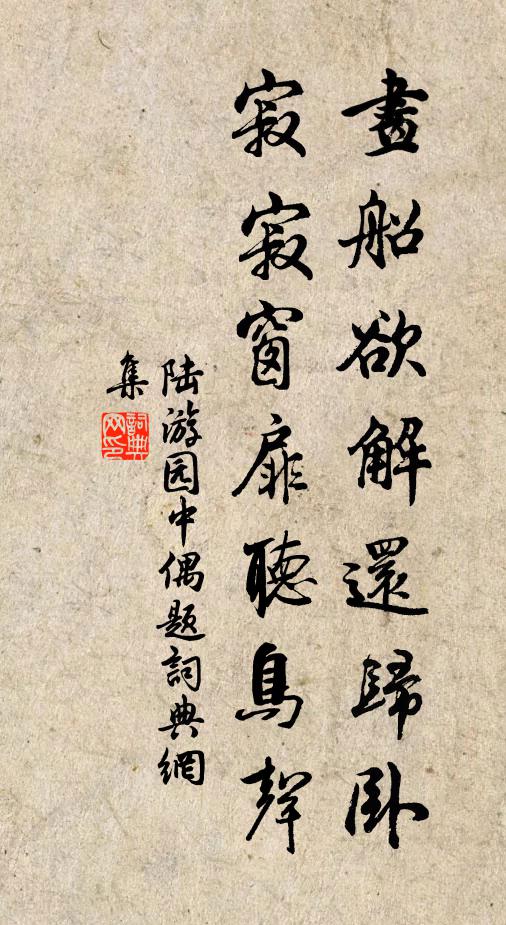 畫船欲解還歸卧
寂寂窗扉聽鳥聲
陆游园中偶题詞典網
集
詞典網印